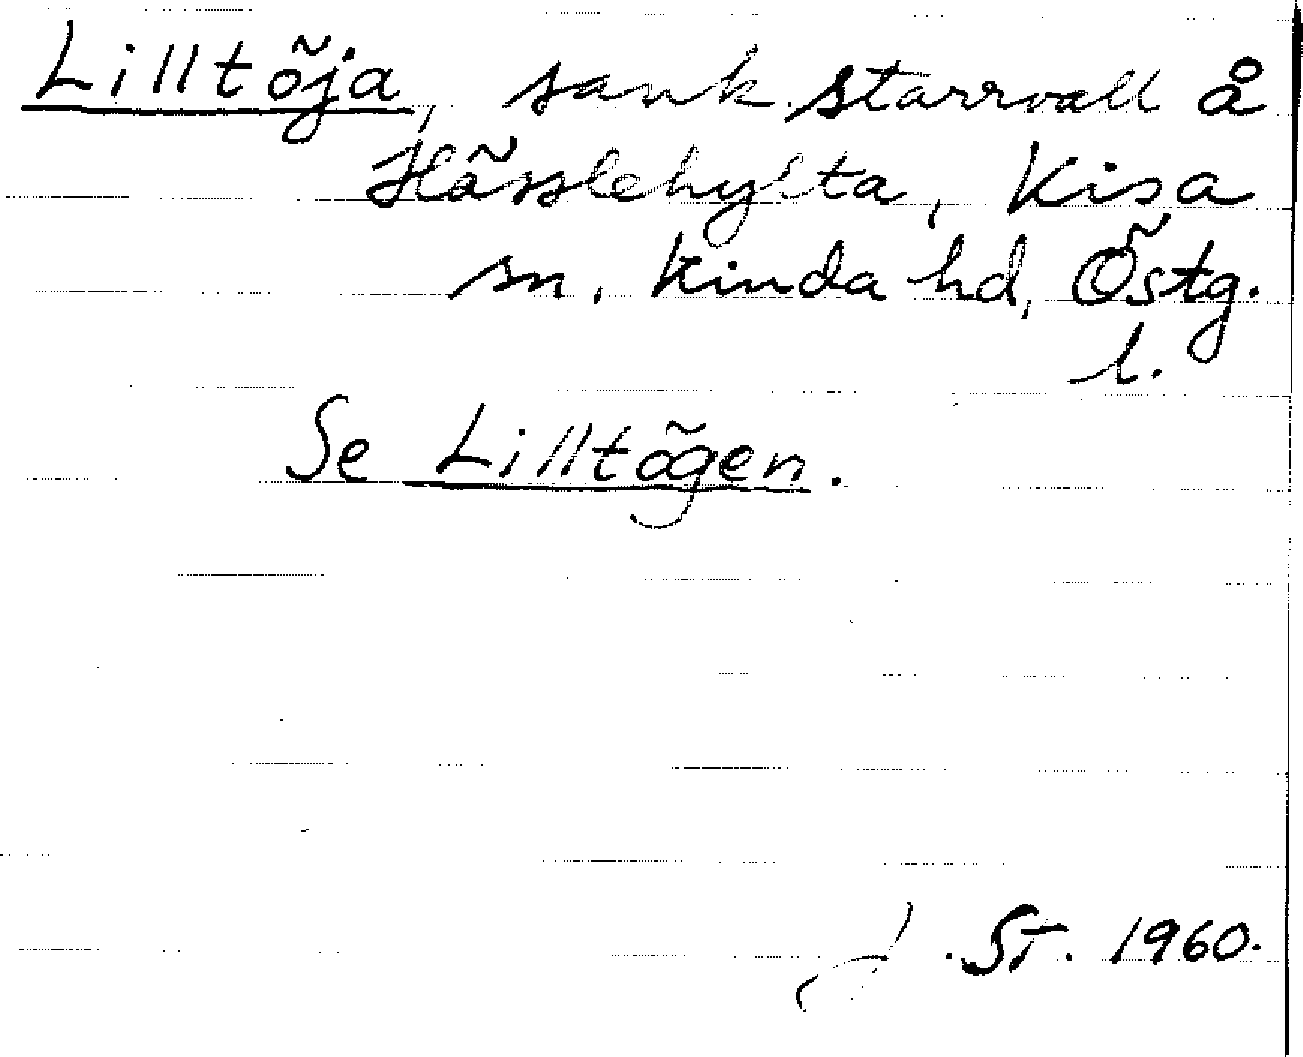 Lilltöja, sank starrvall å
Hässlehylta, Kisa
sn, Kinda hd, Östg.
l.
Se Lilltögen.
J. St. 1960.